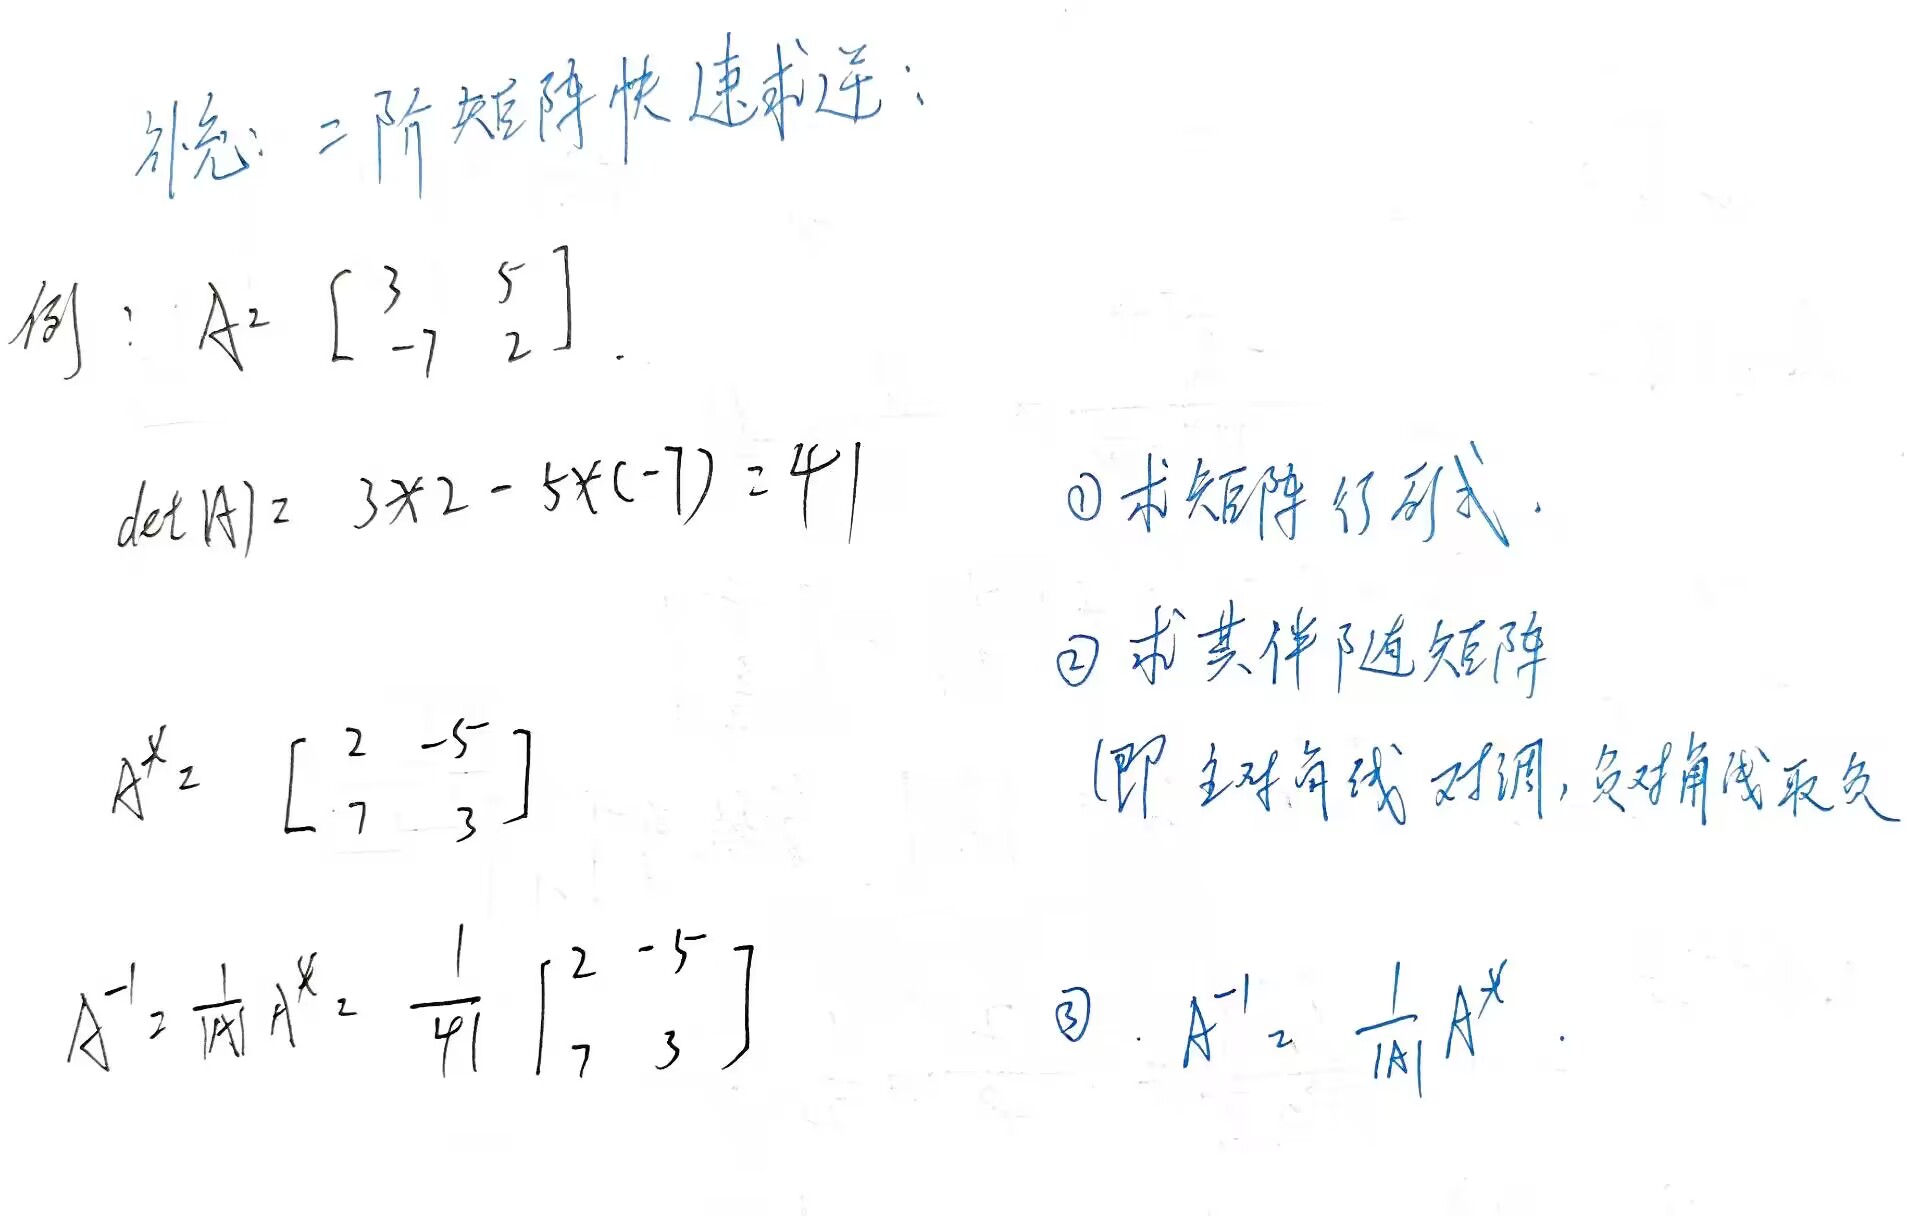 补充：二阶矩阵快速求逆：
例：A = [ 3 5
-7 2 ].
det|A| = 3*2 - 5*(-7) = 41
① 求矩阵行列式.
② 求其伴随矩阵
A* = [ 2 -5
7 3 ]
(即主对角线对调，负对角线取负
A⁻¹ = 1/|A| A* = 1/41 [ 2 -5
7 3 ]
③ . A⁻¹ = 1/|A| A* .